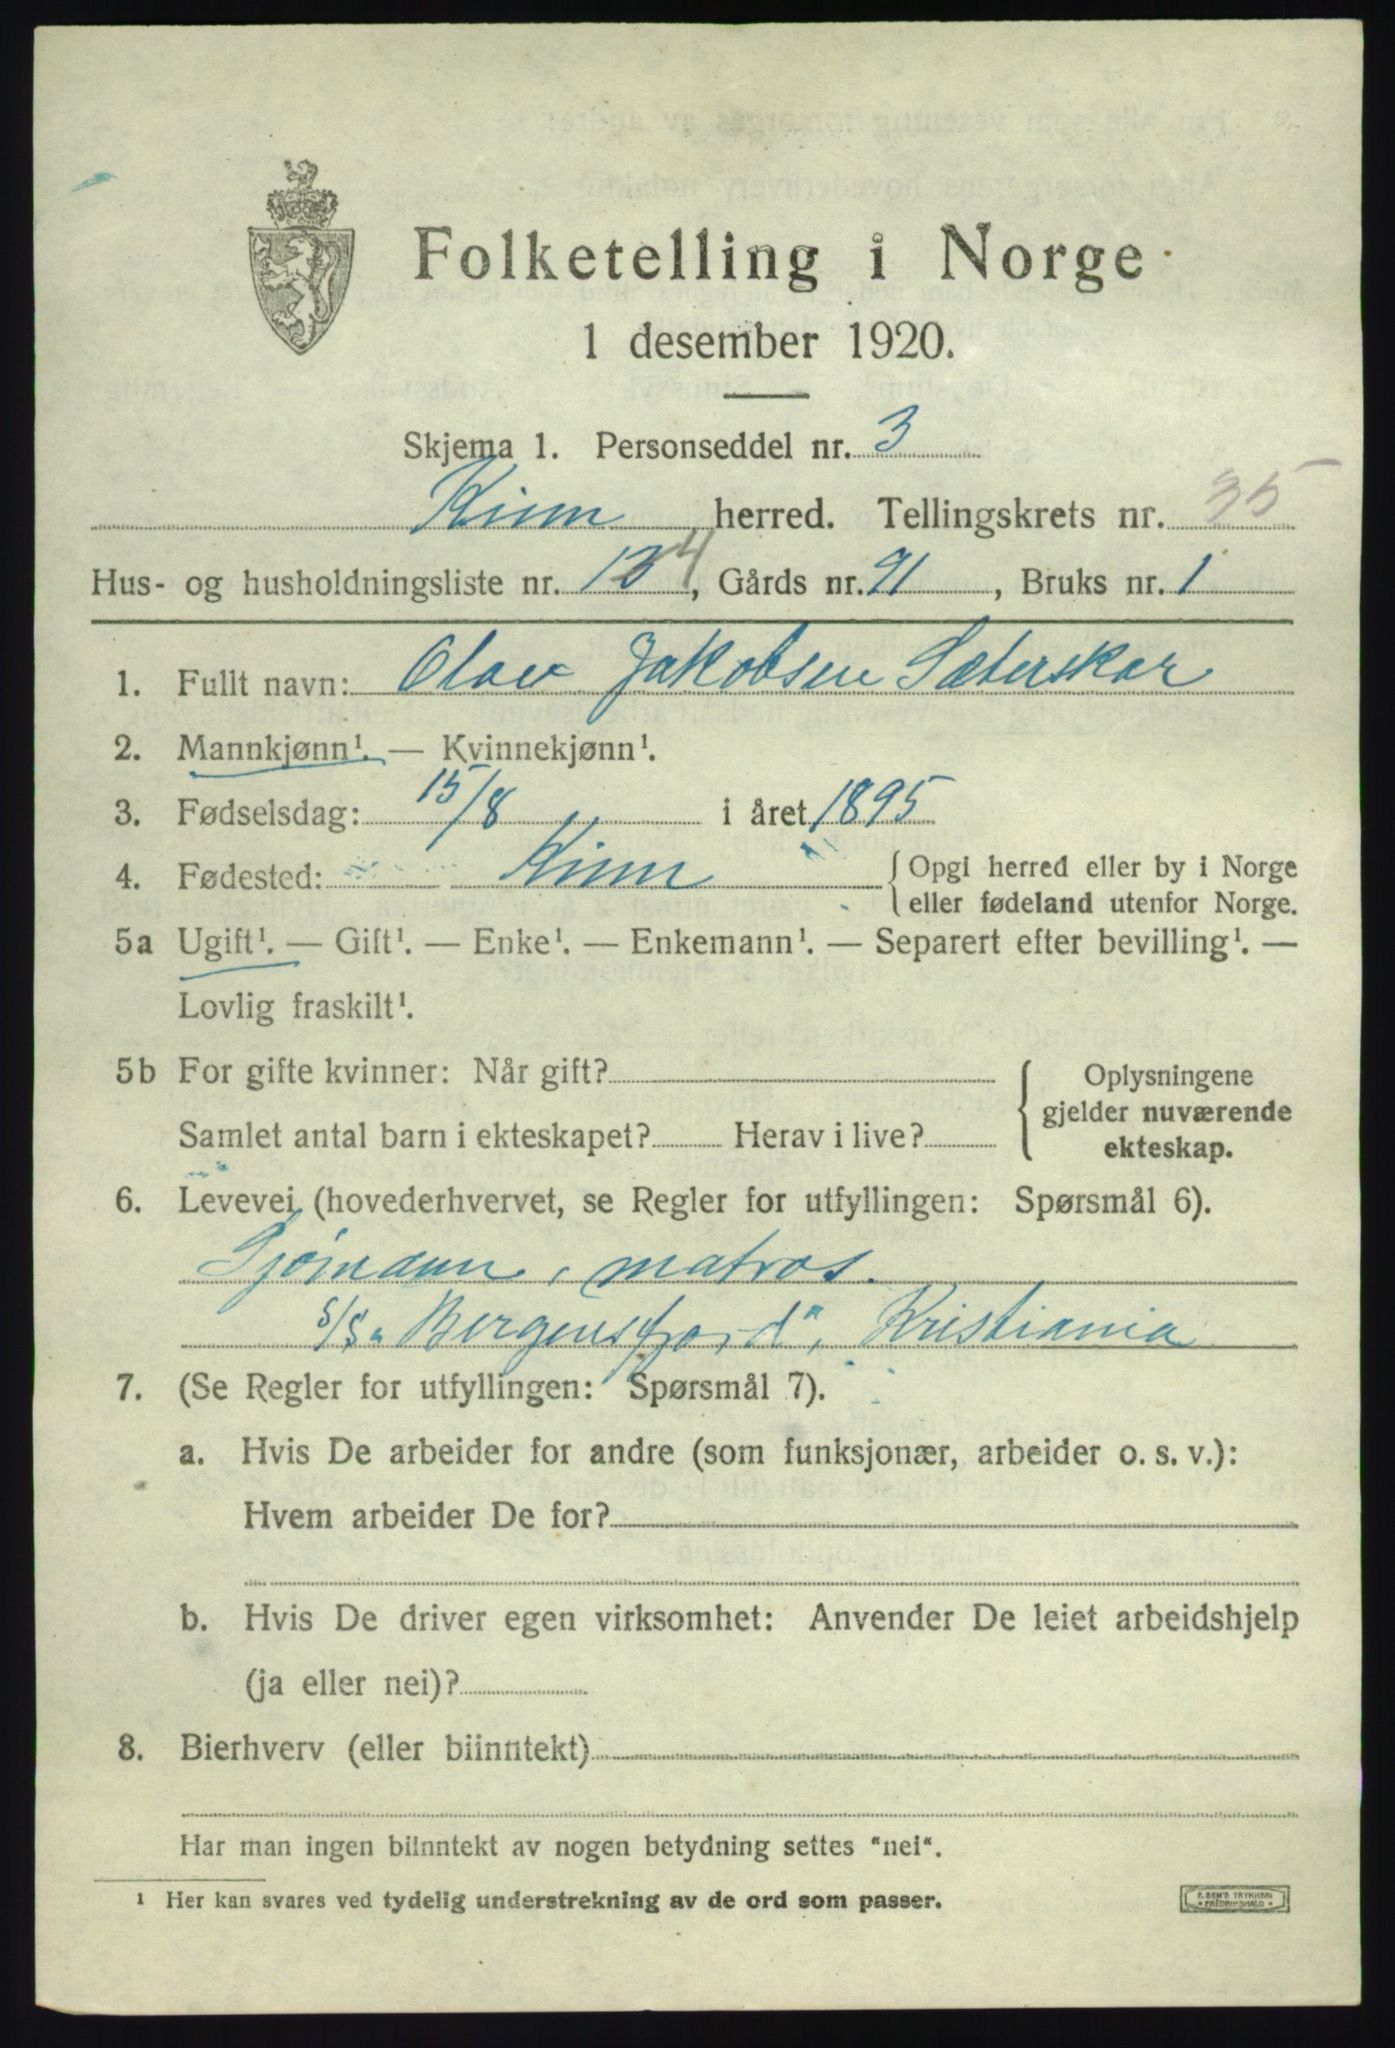 Folketelling i Norge
1 desember 1920.
Skjema 1. Personseddel nr. 3
Kinn herred. Tellingskrets nr. 35
Hus- og husholdningsliste nr. 134, Gårds nr. 91, Bruks nr. 1
1. Fullt navn: Olav Jakobsen Sæterskar
2. Mannkjønn¹. — Kvinnekjønn¹.
3. Fødselsdag: 15/8 i året 1895
4. Fødested: Kinn { Opgi herred eller by i Norge
eller fødeland utenfor Norge.
5a Ugift¹. — Gift¹. — Enke¹. — Enkemann¹. — Separert efter bevilling¹. —
Lovlig fraskilt¹.
5b For gifte kvinner: Når gift? { Oplysningene
gjelder nuværende
Samlet antal barn i ekteskapet? Herav i live? ekteskap.
6. Levevei (hovederhvervet, se Regler for utfyllingen: Spørsmål 6).
Sjømann, matros.
s/s „Bergensfjord", Kristiania
7. (Se Regler for utfyllingen: Spørsmål 7).
a. Hvis De arbeider for andre (som funksjonær, arbeider o. s. v.):
Hvem arbeider De for?
b. Hvis De driver egen virksomhet: Anvender De leiet arbeidshjelp
(ja eller nei)?
8. Bierhverv (eller biinntekt)
Har man ingen biinntekt av nogen betydning settes "nei".
¹ Her kan svares ved tydelig understrekning av de ord som passer.
E. SEM'S TRYKKERI
FREDRIKSHALD